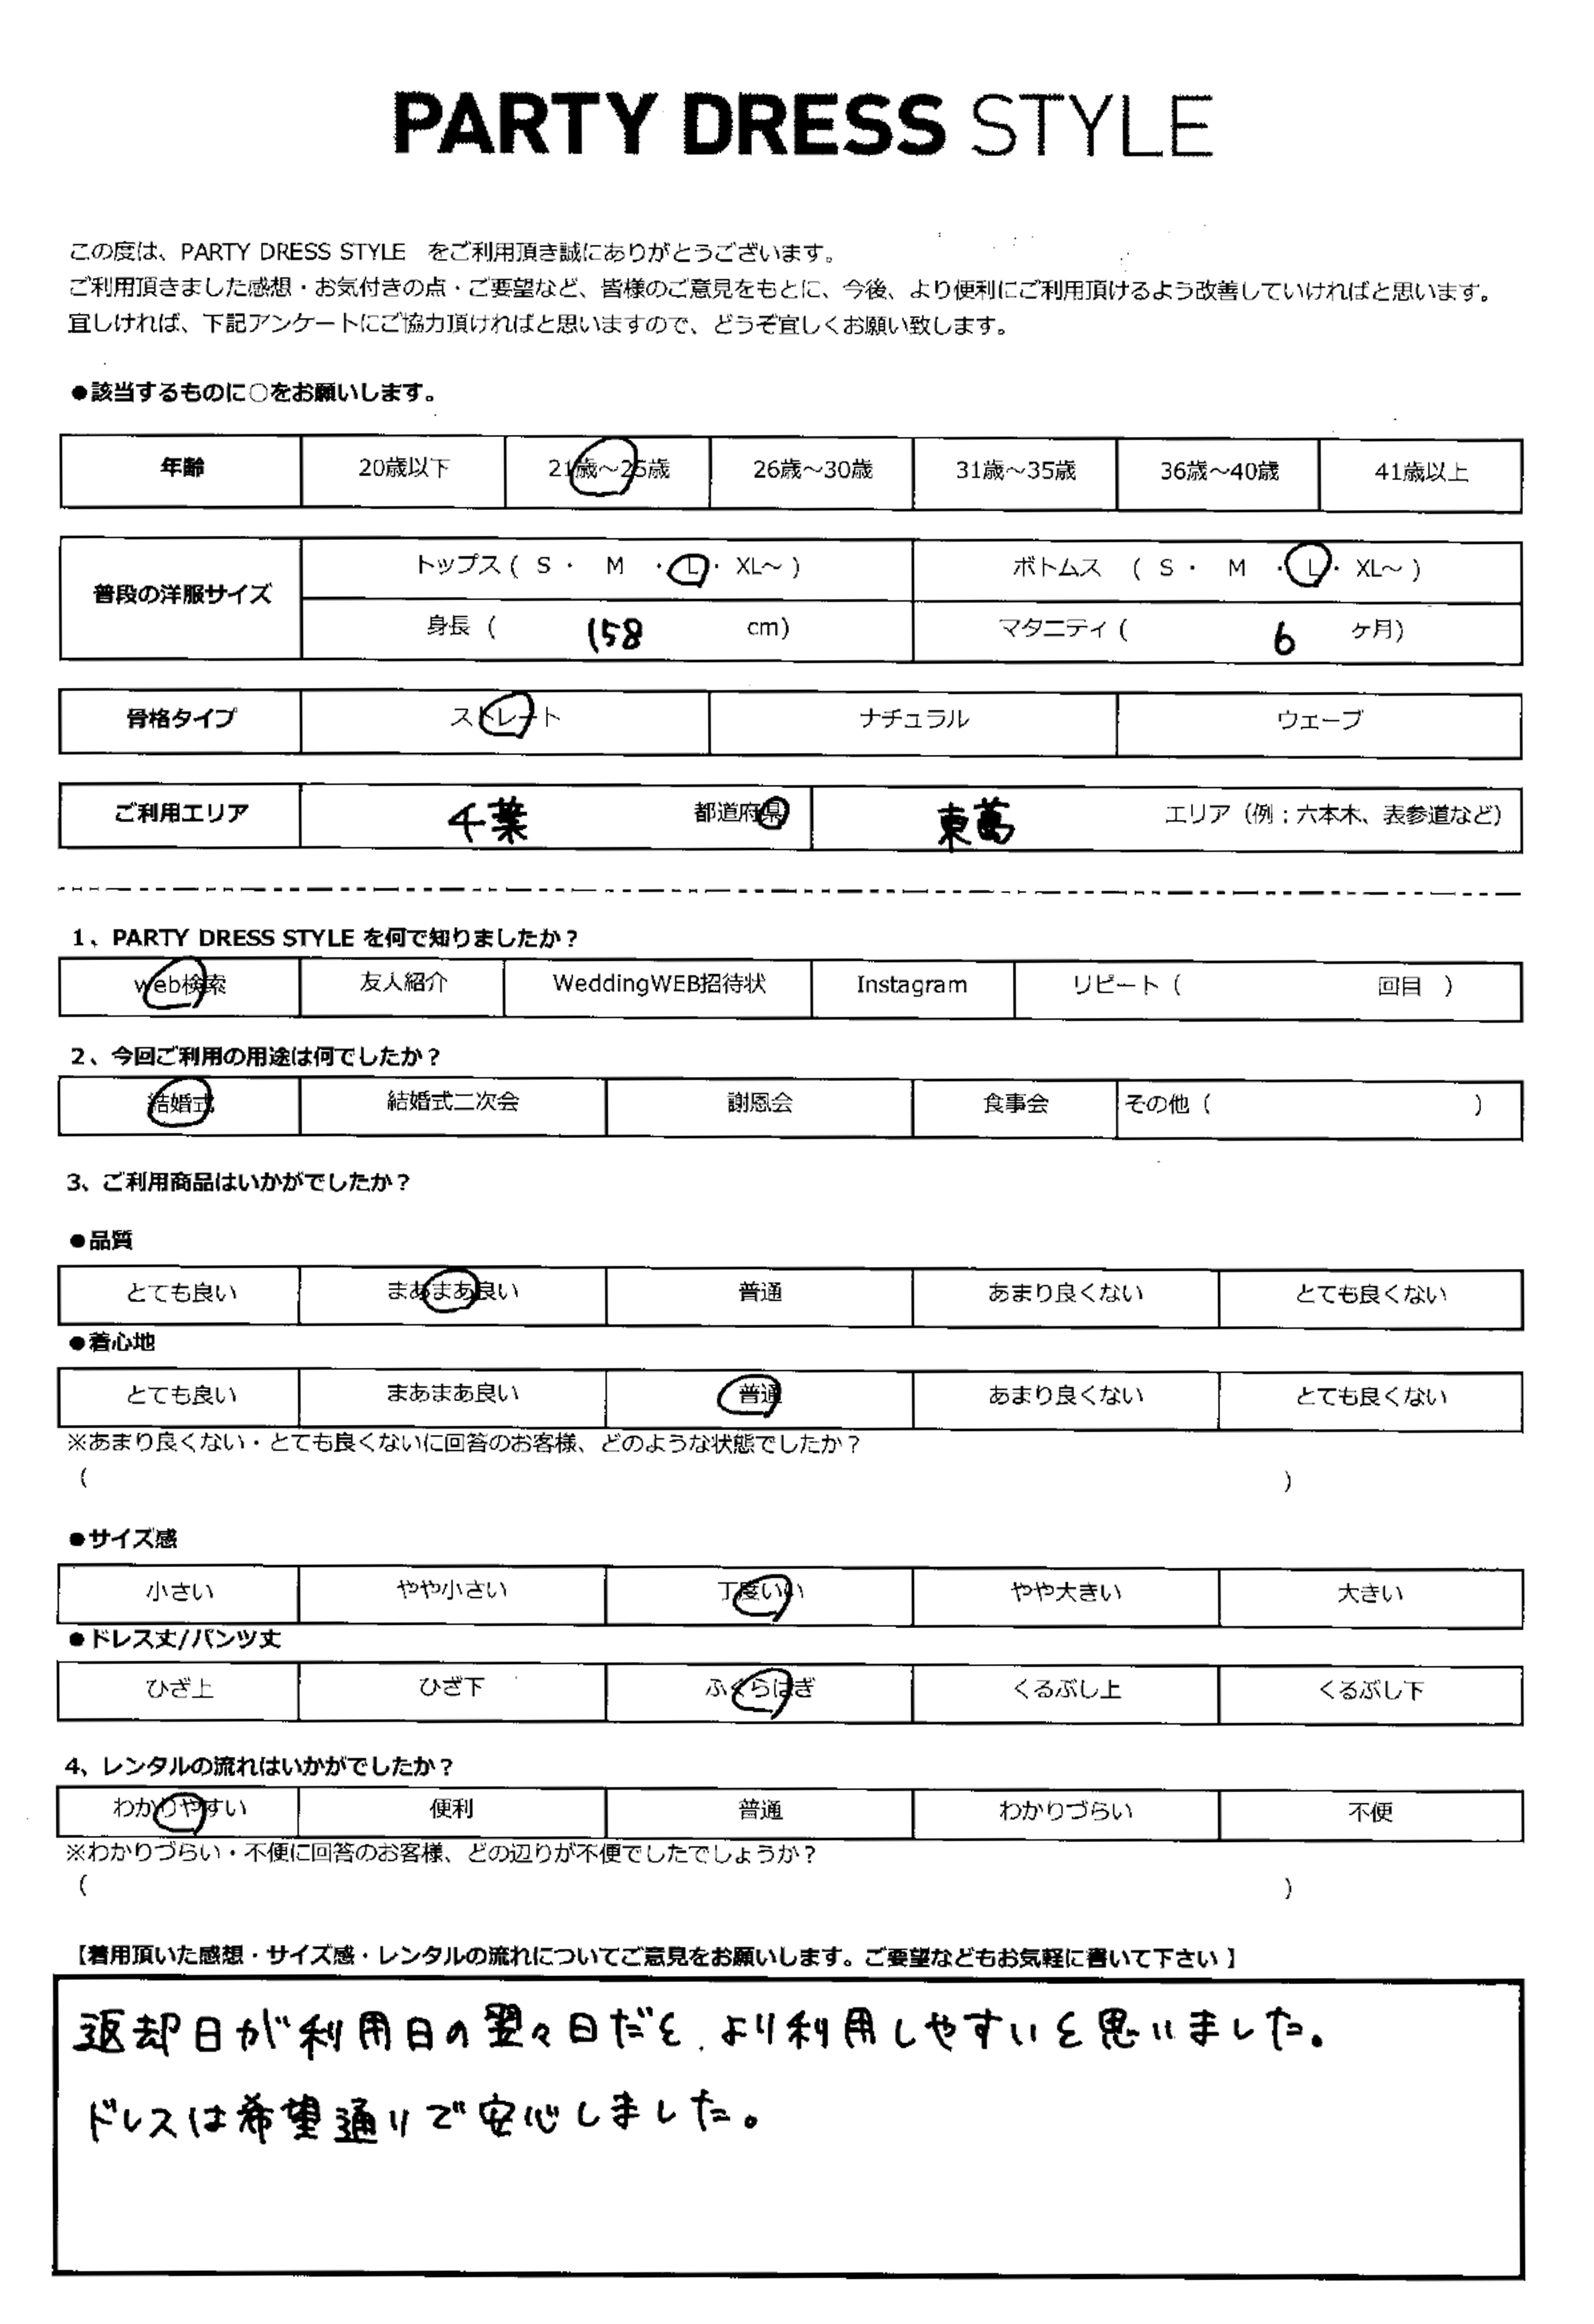 PARTY DRESS STYLE
この度は、PARTY DRESS STYLE をご利用頂き誠にありがとうございます。
ご利用頂きました感想・お気付きの点・ご要望など、皆様のご意見をもとに、今後、より便利にご利用頂けるよう改善していければと思います。
宜しければ、下記アンケートにご協力頂ければと思いますので、どうぞ宜しくお願い致します。
●該当するものに○をお願いします。
年齢 20歳以下 21歳～25歳 26歳～30歳 31歳～35歳 36歳～40歳 41歳以上
普段の洋服サイズ トップス ( S ・ M ・ L ・ XL～ ) ボトムス ( S ・ M ・ L ・ XL～ )
身長 ( 158 cm) マタニティ ( 6 ヶ月)
骨格タイプ ストレート ナチュラル ウェーブ
ご利用エリア 千葉 都道府県 東葛 エリア（例：六本木、表参道など）
1、PARTY DRESS STYLE を何で知りましたか？
web検索 友人紹介 WeddingWEB招待状 Instagram リピート（ 回目 ）
2、今回ご利用の用途は何でしたか？
結婚式 結婚式二次会 謝恩会 食事会 その他（ ）
3、ご利用商品はいかがでしたか？
●品質
とても良い まあまあ良い 普通 あまり良くない とても良くない
●着心地
とても良い まあまあ良い 普通 あまり良くない とても良くない
※あまり良くない・とても良くないに回答のお客様、どのような状態でしたか？
（ ）
●サイズ感
小さい やや小さい 丁度いい やや大きい 大きい
●ドレス丈/パンツ丈
ひざ上 ひざ下 ふくらはぎ くるぶし上 くるぶし下
4、レンタルの流れはいかがでしたか？
わかりやすい 便利 普通 わかりづらい 不便
※わかりづらい・不便に回答のお客様、どの辺りが不便でしたでしょうか？
（ ）
【着用頂いた感想・サイズ感・レンタルの流れについてご意見をお願いします。ご要望などもお気軽に書いて下さい 】
返却日が利用日の翌々日だと、より利用しやすいと思いました。
ドレスは希望通りで安心しました。